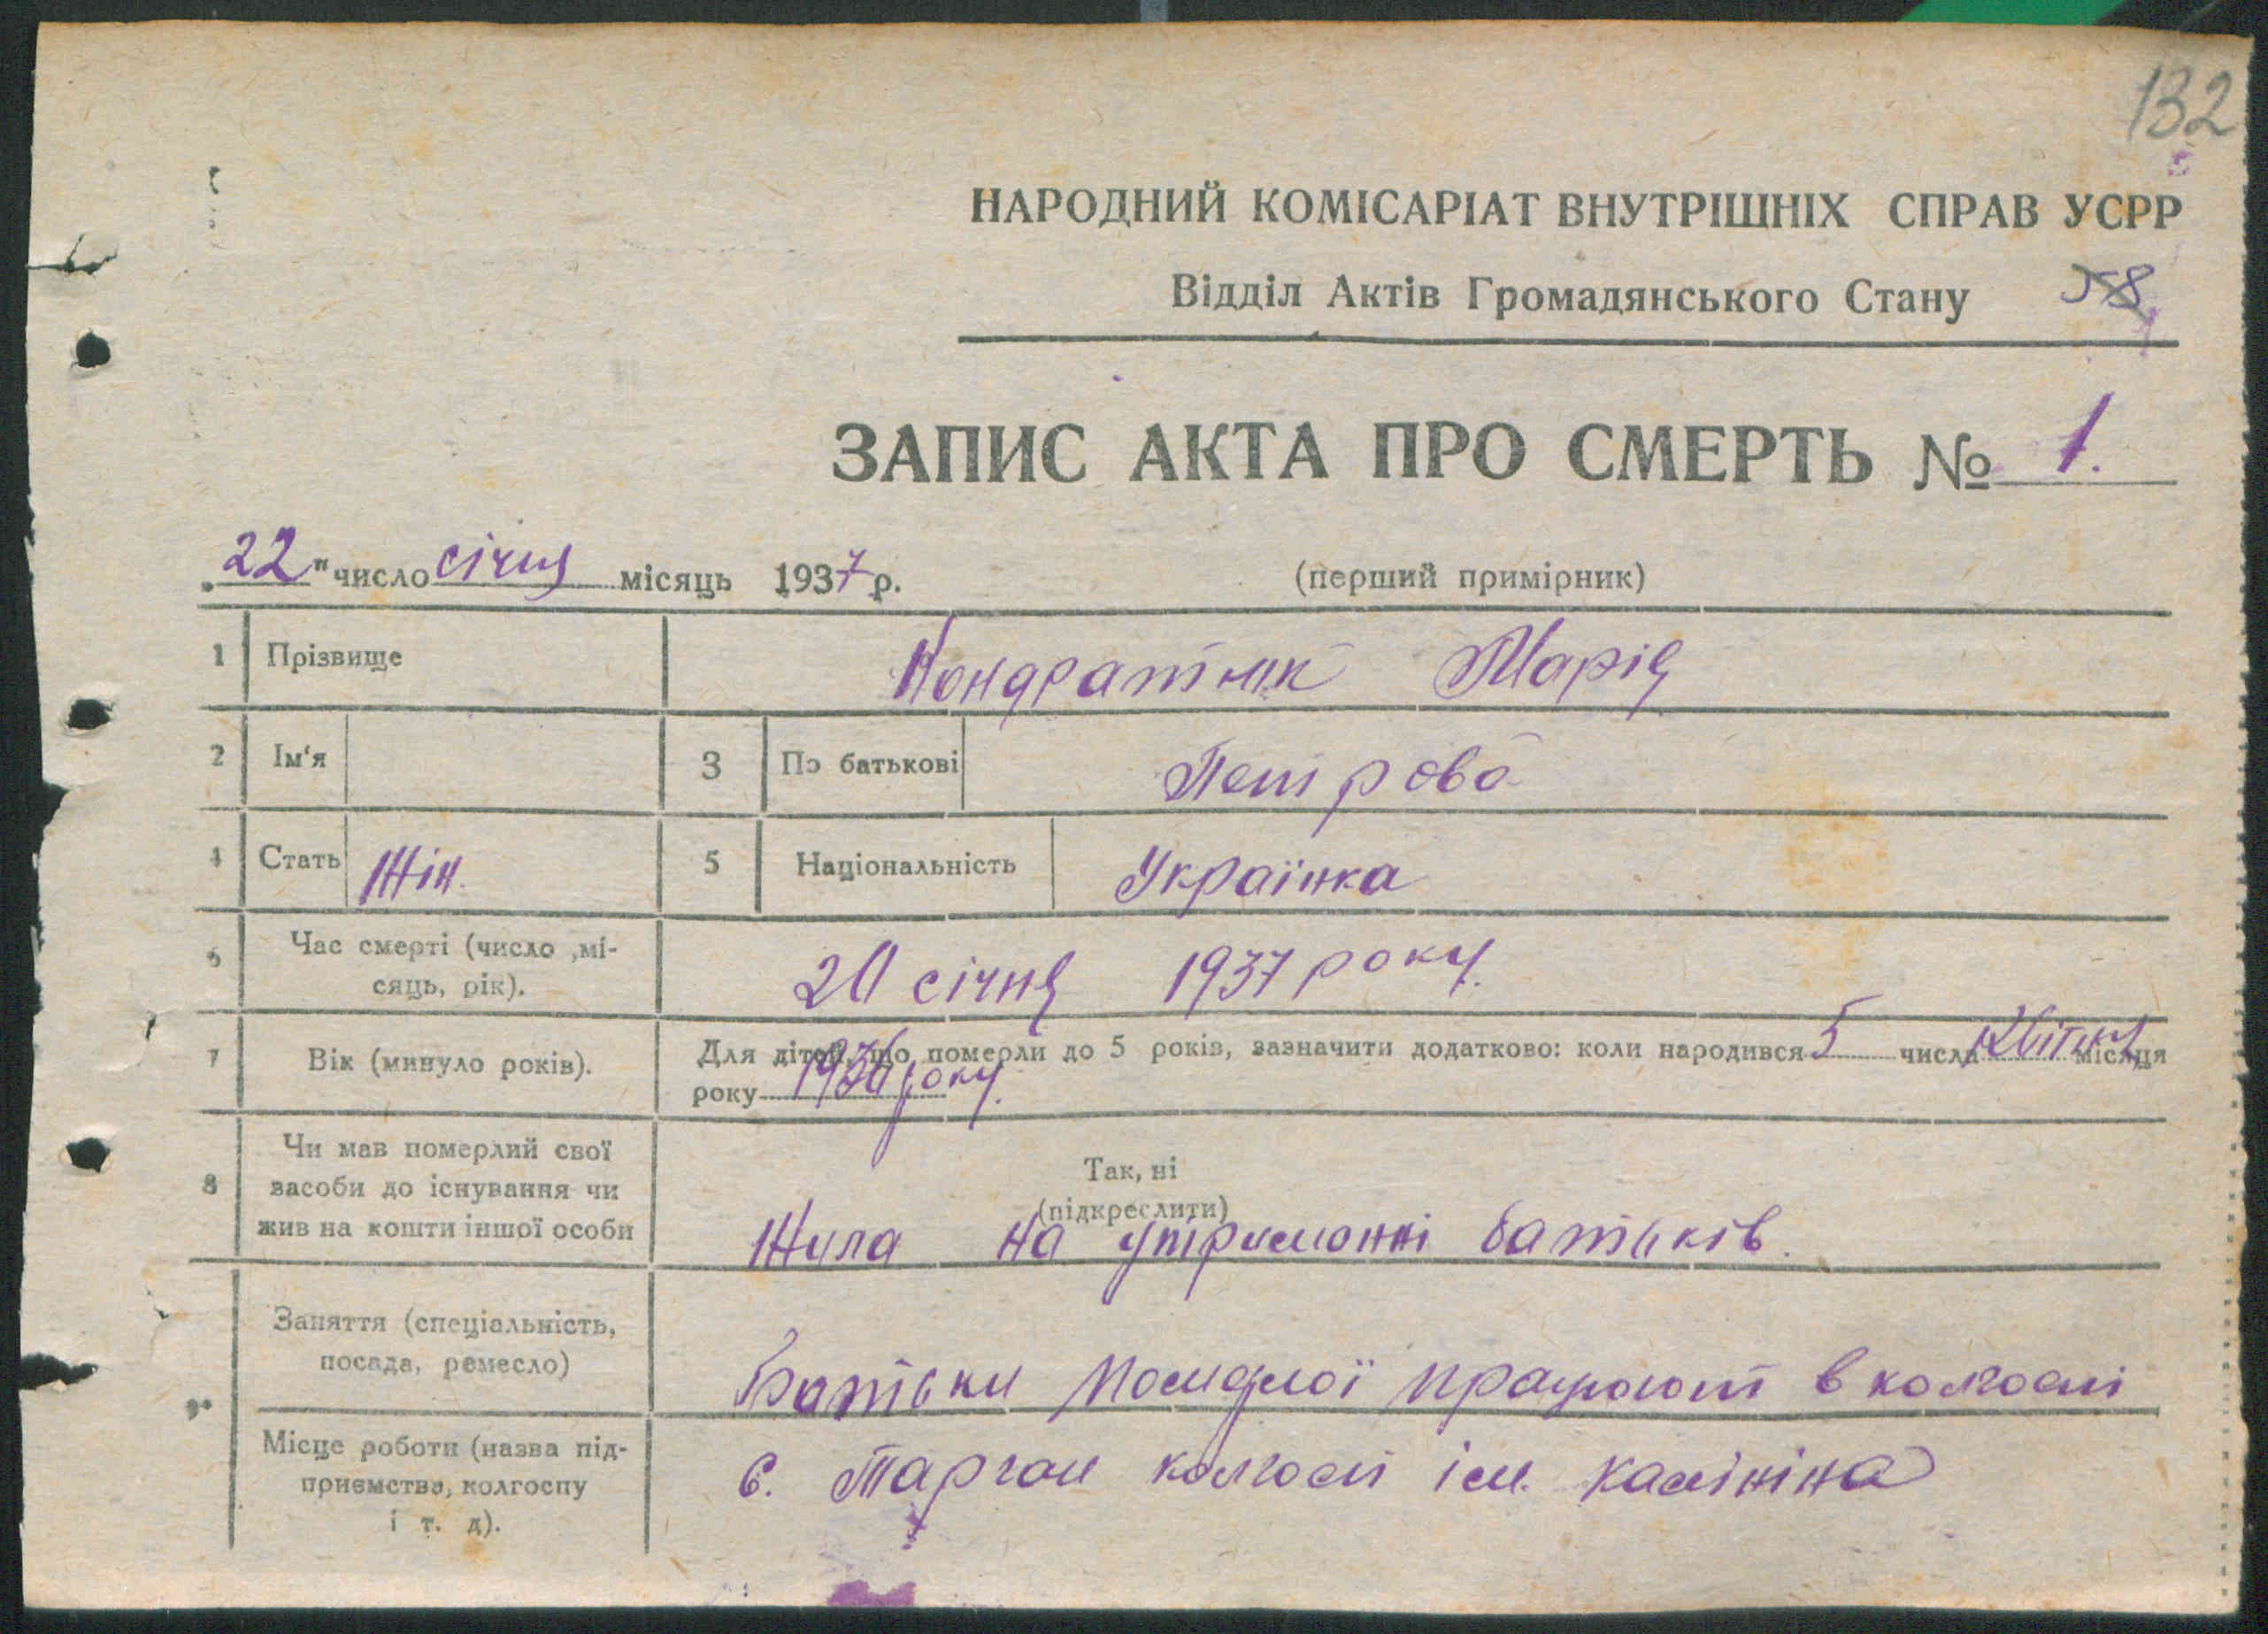 132
НАРОДНИЙ КОМІСАРІАТ ВНУТРІШНІХ СПРАВ УСРР
Відділ Актів Громадянського Стану 58
ЗАПИС АКТА ПРО СМЕРТЬ № 1.
„22" число січня місяць 1937 р. (перший примірник)
1 Прізвище Кондратюк Марія
2 Ім'я 3 По батькові Петрова
4 Стать Жін. 5 Національність Українка
6 Час смерті (число ,мі-
сяць, рік). 20 січня 1937 року.
7 Вік (минуло років). Для дітей, що померли до 5 років, зазначити додатково: коли народився 5 числа Квітня місяця
року 1936 року.
8 Чи мав померлий свої
засоби до існування чи
жив на кошти іншої особи
Так, ні
(підкреслити)
Жила на утриманні батьків.
9. Заняття (спеціальність,
посада, ремесло)
Батьки померлої працюют в колгоспі
Місце роботи (назва під-
приємства, колгоспу
і т. д).
с. Торгон колгосп ім. Калініна